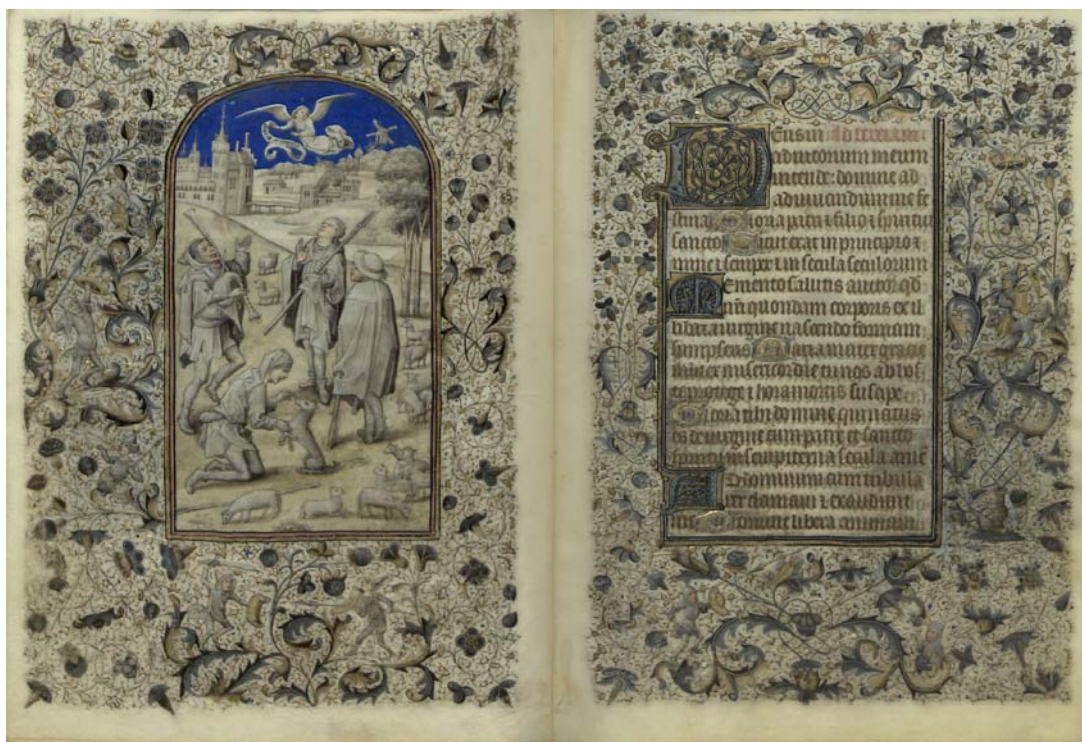 Deus in Ad terciam.
adiutorium meum
intende: domine ad
adiuuandum me fe
stina. Gloria patri ⁊ filio ⁊ spiritui
sancto Sicut erat in principio ⁊
nunc ⁊ semper ⁊ in secula seculorum
Memento salutis auctor qd
nri quondam corporis ex il
libata uirgine nascendo formam
sumpseris Maria mater gracie
mater misericordie tu nos ab hos
te protege ⁊ hora mortis suscipe
Gloria tibi domine qui natus
es de uirgine cum patre et sancto
spiritu in sempiterna secula amē
Ad dominum cum tribula
rer clamaui ⁊ exaudiuit
me Domine libera animam